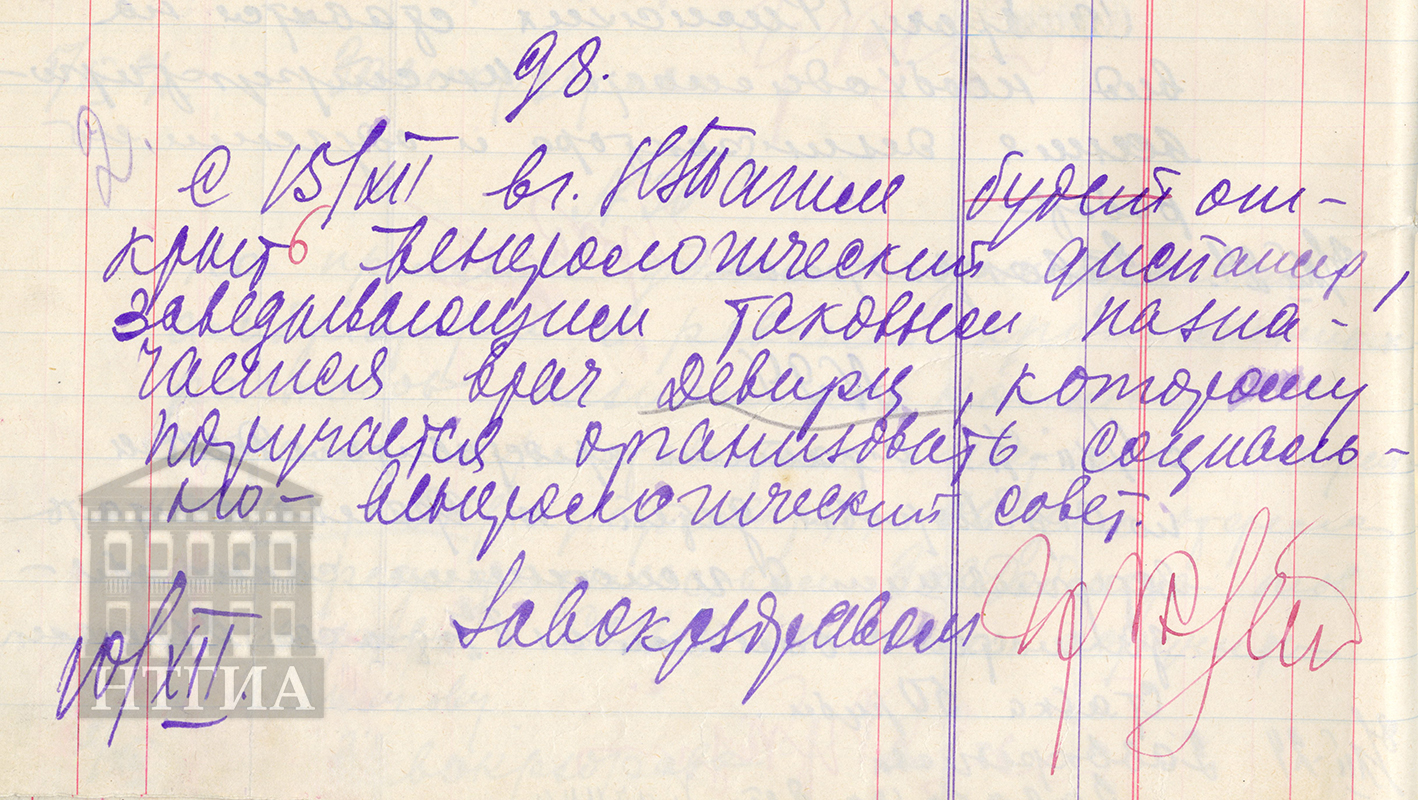 98.
С 15/XII в г. Н.Тагиле будет от-
крыт венерологический диспансер,
заведывающим таковым назна-
чается врач Девирц, которому
поручается организовать социаль-
но-венерологический совет.
Завокрздравом
10/XII.
НТГИА